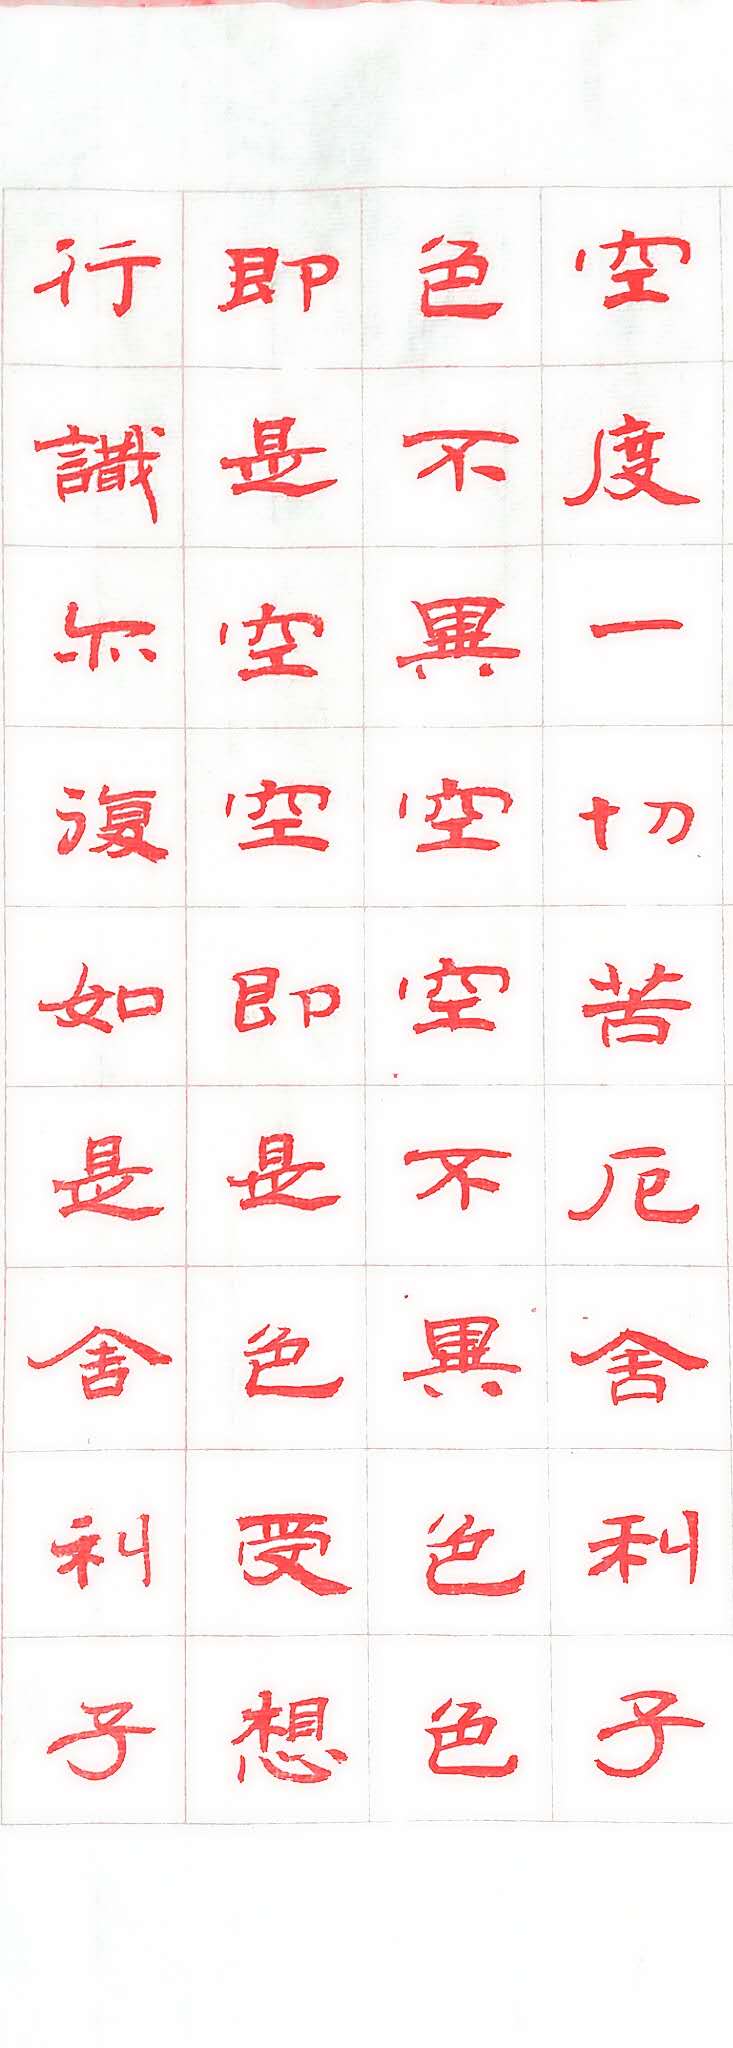 空度一切苦厄舍利子
色不異空空不異色色
即是空空即是色受想
行識亦復如是舍利子